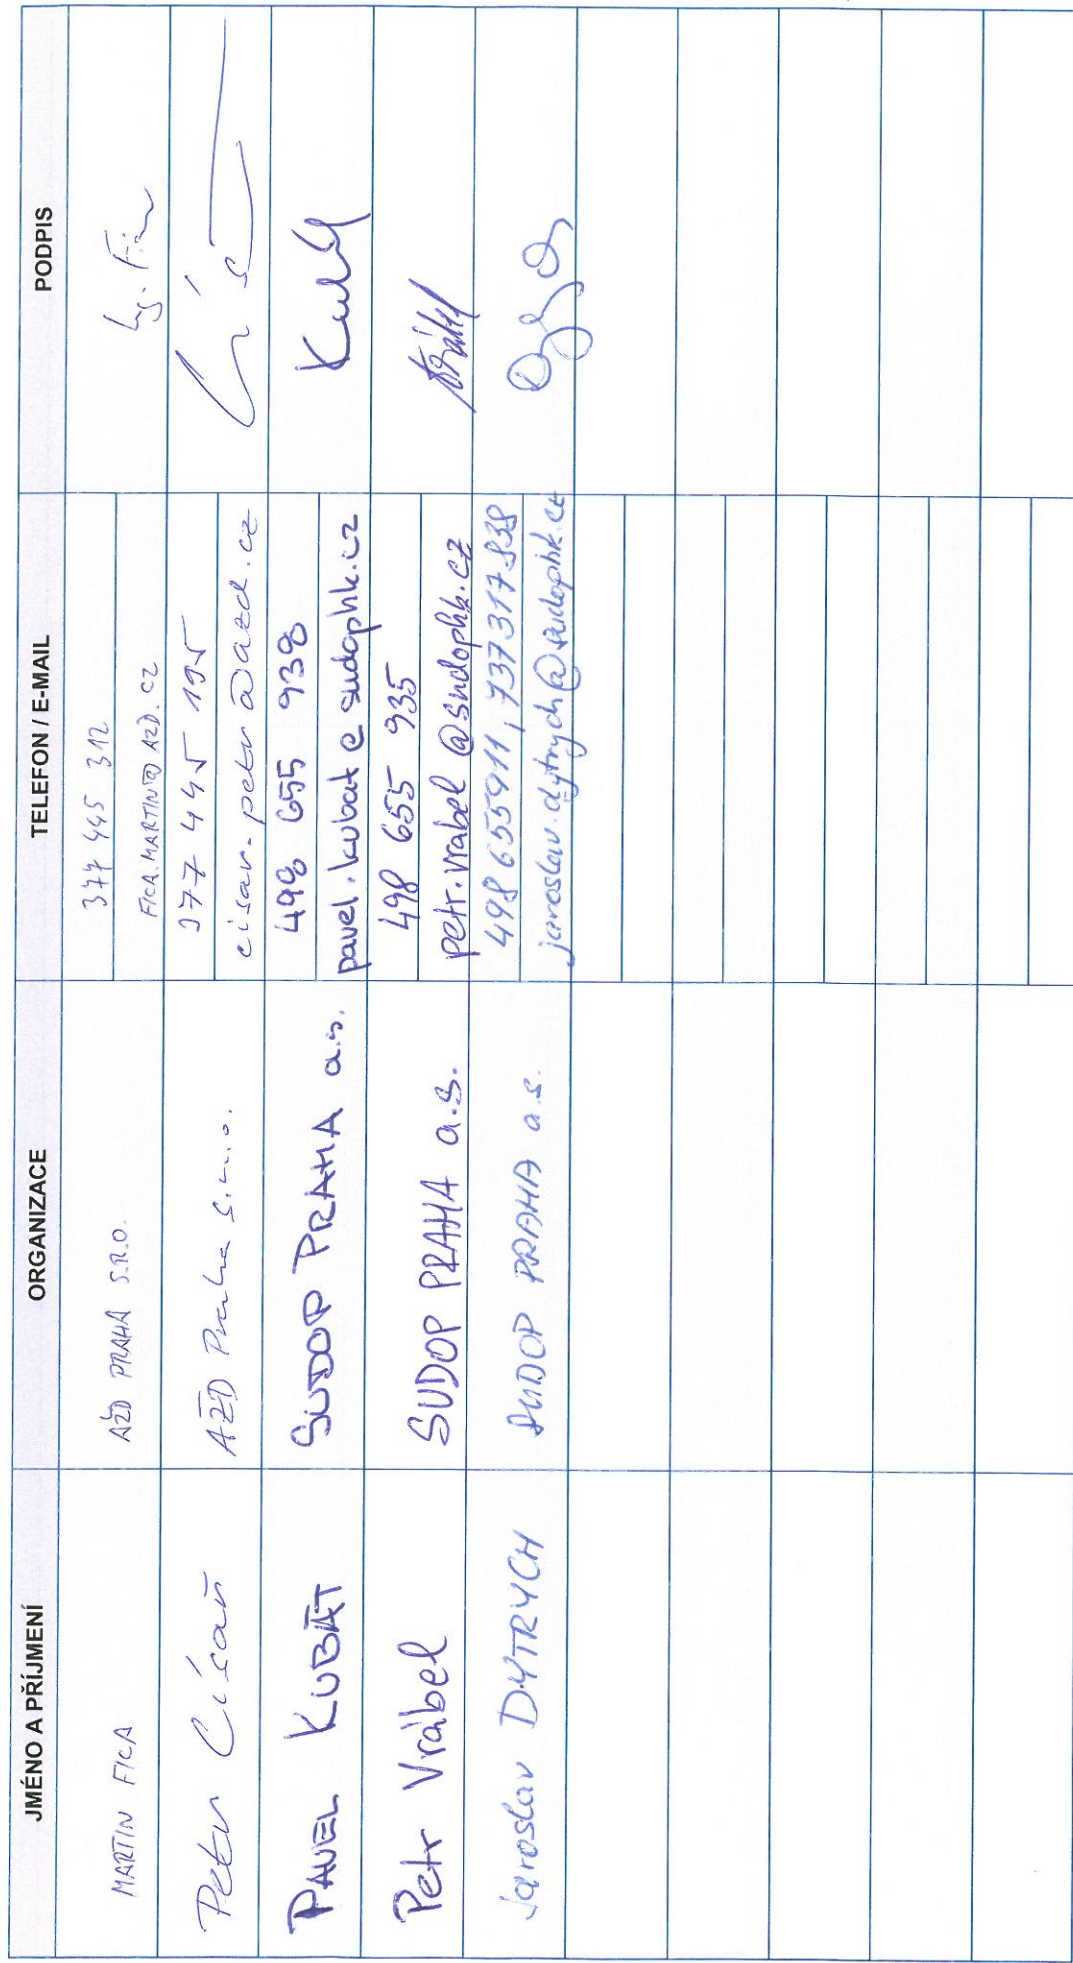 JMÉNO A PŘÍJMENÍ ORGANIZACE TELEFON / E-MAIL PODPIS
MARTIN FICA AŽD PRAHA S.R.O. 377 445 312
FICA.MARTIN@AZD.CZ
Petr Císař AŽD Praha s.r.o. 377 445 195
cisar.petr@azd.cz
PAVEL KUBÁT SUDOP PRAHA a.s. 498 655 938
pavel.kubat@sudophk.cz
Petr Vrábel SUDOP PRAHA a.s. 498 655 935
petr.vrabel@sudophk.cz
Jaroslav DYTRYCH SUDOP PRAHA a.s. 498 655911, 737317838
jaroslav.dytrych@sudophk.cz